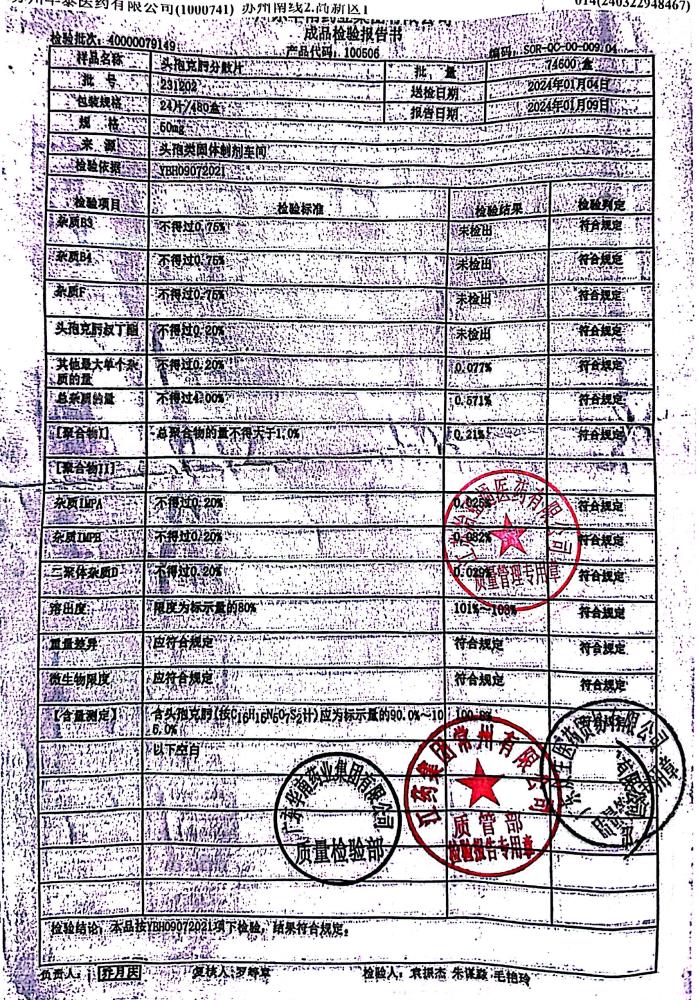 医药有限公司(1000741) 苏州南线2.高新区1
014(240322948467)
成品检验报告书
检验批次: 40000079149 产品代码: 100506 编码: SOR-QC-00-009.04
样品名称 头孢克肟分散片 批 量 74600 盒
批 号 231202 送检日期 2024年01月04日
包装规格 24片/480盒 报告日期 2024年01月09日
规 格 50mg
来 源 头孢类固体制剂车间
检验依据 YBH09072021
检验项目 检验标准 检验结果 检验判定
杂质B3 不得过0.75% 未检出 符合规定
杂质B4 不得过0.75% 未检出 符合规定
杂质F 不得过0.75% 未检出 符合规定
头孢克肟叔丁酯 不得过0.20% 未检出 符合规定
其他最大单个杂 不得过0.20% 0.077% 符合规定
质的量
总杂质的量 不得过4.00% 0.571% 符合规定
[聚合物I] 总聚合物的量不得大于1.0% 0.21% 符合规定
[聚合物II]
杂质IMPA 不得过0.20% 符合规定
杂质IMPE 不得过0.20% 0.082% 符合规定
二聚体杂质D 不得过0.20% 符合规定
溶出度 限度为标示量的80% 101%~103% 符合规定
重量差异 应符合规定 符合规定 符合规定
微生物限度 应符合规定 符合规定 符合规定
【含量测定】 含头孢克肟(按C16H15N5O7S2计)应为标示量的90.0%~10
5.0%
以下空白
医药有限公司
质量管理专用章
广东华南药业集团有限公司
质量检验部
江药集团常州有限公司
质管部
检验报告专用章
检验结论: 本品按YBH09072021项下检验, 结果符合规定。
负责人: 乔月庆 复核人: 检验人: 袁振杰 毛艳玲